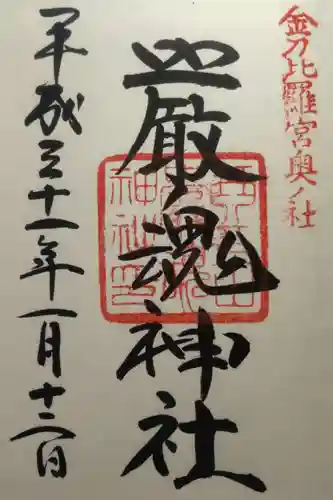 金刀比羅宮奥ノ社
厳魂神社
平成三十一年一月十三日